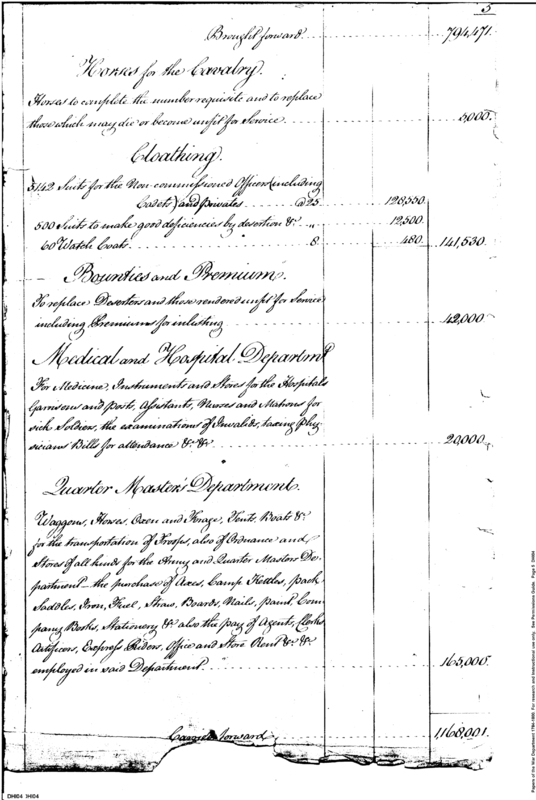 5
Brought forward 794,471.
Horses for the Cavalry.
Horses to complete the number requisite and to replace
those which may die or become unfit for Service 5,000.
Cloathing.
5142 Suits for the Non-commissioned Officers (including
Cadets) and privates @ 25 128,550.
500 Suits to make good deficiencies by desertion &c. " 12,500.
60 Watch Coats 8 480. 141,530.
Bounties and Premium.
To replace Deserters and those rendered unfit for Service
including Premiums for inlisting 42,000
Medical and Hospital Departmt
For Medicine, Instruments and Stores for the Hospitals
Garrisons and posts, Assistants, Nurses and Matrons for
sick Soldiers, the examinations of Invalids, taxing Phy-
sicians Bills for attendance &c. &c. 20,000.
Quarter Master's Department.
Waggons, Horses, Oxen and Forage, Tents, Boats &c.
for the transportation of Troops, also of Ordnance and
Stores of all kinds for the Army and Quarter Masters De-
partment - the purchase of Axes, Camp Kettles, pack
Saddles, Iron, Fuel, Straw, Boards, Nails, paint, Com-
pany Books, Stationery &c. also the pay of Agents, Clerks
Artificers, Express Riders, Office and Store Rent &c. &c.
employed in said Department 165,000.
Carried forward 1168,001.
DHI04 IHI04
Papers of the War Department 1784-1800: For research and instructional use only. See Permissions Guide. Page 5 DHI04